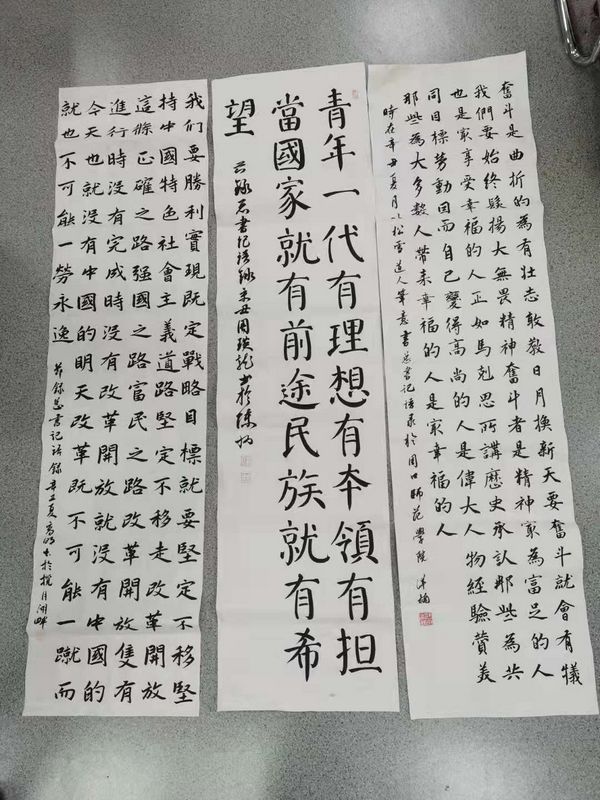 奮斗是曲折的為有壮志敢教日月換新天要奮斗就會有犧
我們要始終髮揚大無畏精神奮斗者是精神冣為富足的人
也是冣享受幸福的人正如馬剋思所講歷史承認那些為共
同目標勞動因而自己變得高尚的人是偉大人物經驗賛美
那些為大多數人帶来幸福的人是冣幸福的人
時在辛丑夏月以松雪道人筆意書总書记语录於周口師范學院
青年一代有理想有本領有担
當國家就有前途民族就有希
望
総书记语録辛丑周
我们要勝利實現既定戰略目標就要堅定不移堅
持中國特色社會主義道路堅定不移走改革開放
這條正確之路强國之路富民之路改革開放隻有
進行時没有完成時没有改革開放就没有中國的
今天也就没有中國的明天改革既不可能一蹴而
就也不可能一勞永逸
節録总書记语録辛丑夏於攬月湖畔